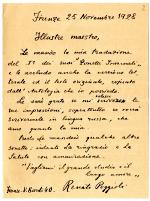 Firenze 25 Novembre 1928
Illustre maestro,
Le mando la mia traduzione
del I° dei suoi "Poneti Invernali",
e le accludo anche la versione let-
terale ed il testo originale, copiato
dall'Antologia che io possiedo.
Le sarò grato se mi scriverà le
sue impressioni, soprattutto se vorrà
scrivermele in lingua russa, che
amo quanto la mia.
Presto Le manderò qualche altro
sonetto; intanto La ringrazio e La
saluto con ammirazione.
"Vagliami il grande studio e il
lungo amore"
Renato Poggioli
Firenze. V. Bardi 40.